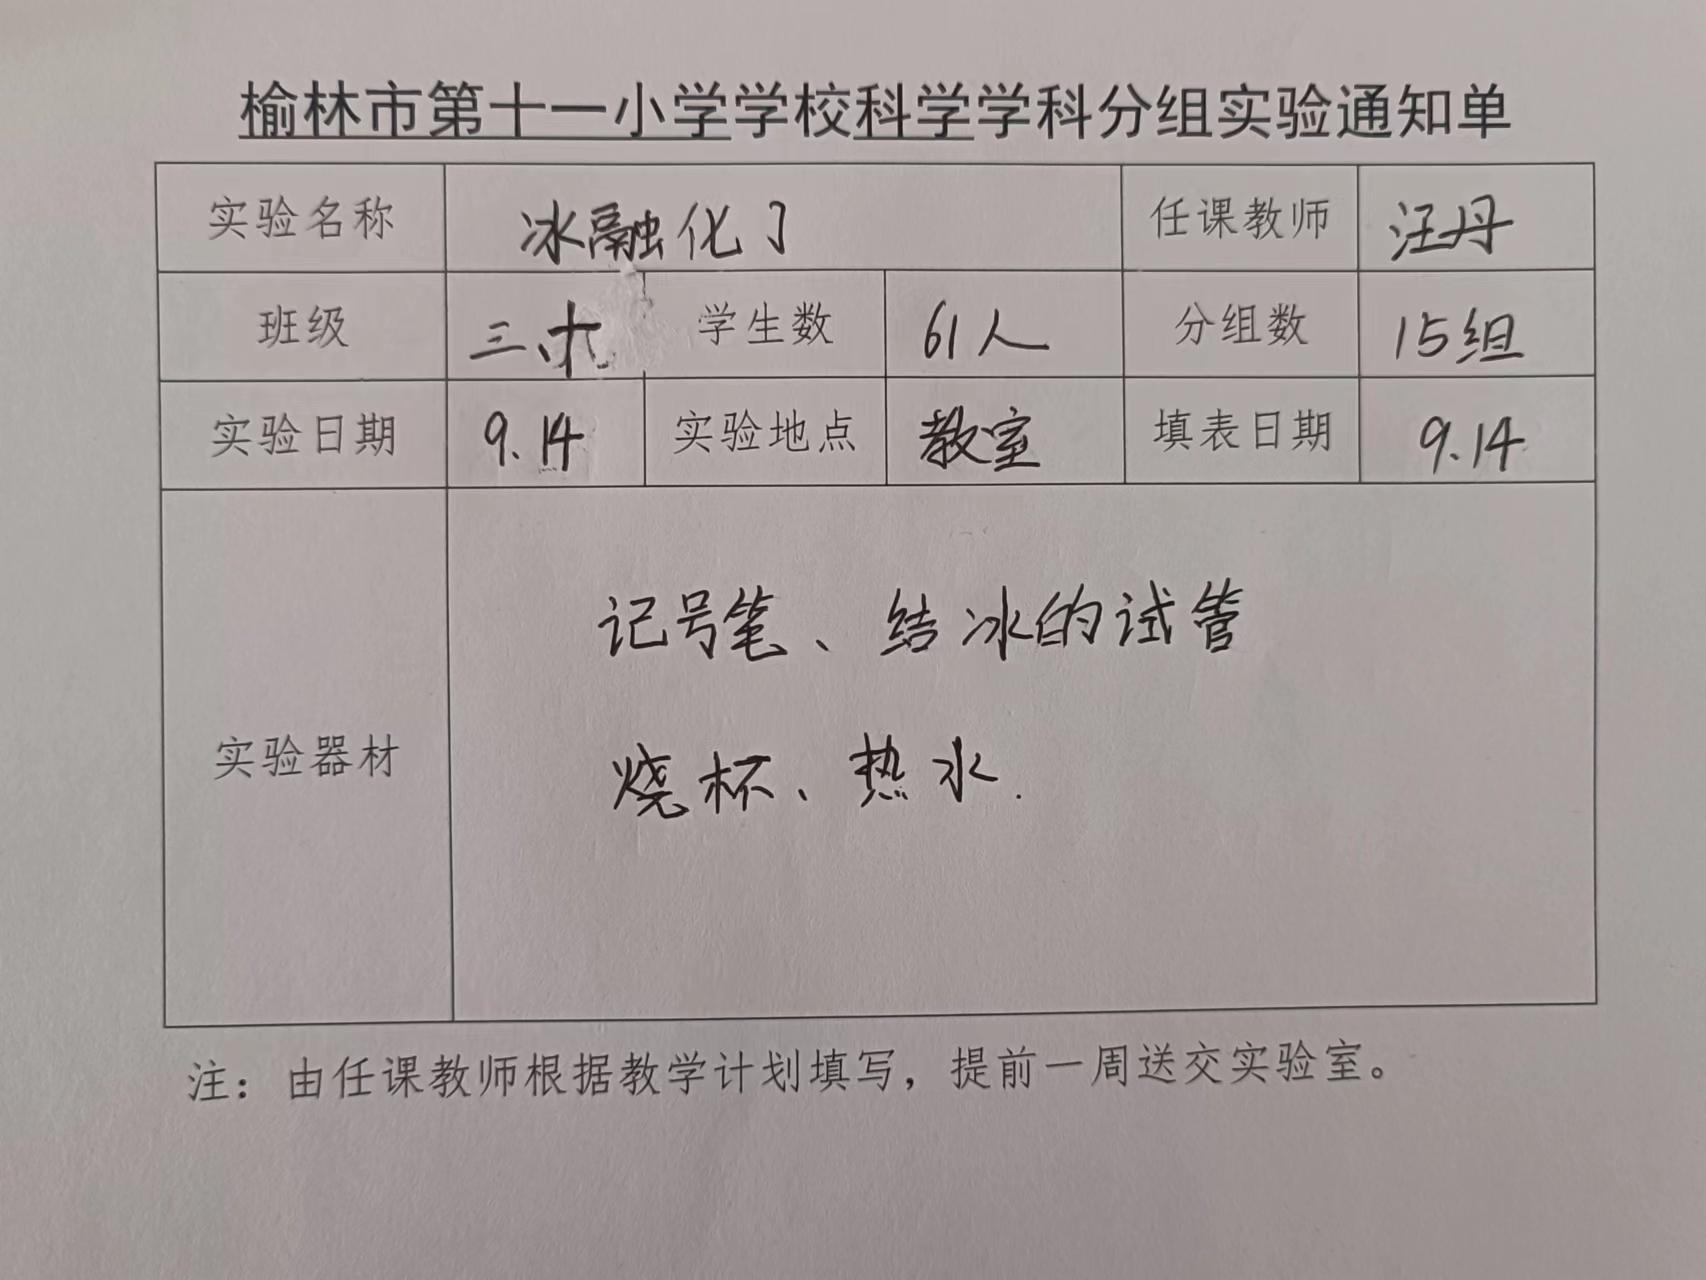 榆林市第十一小学学校科学学科分组实验通知单
实验名称 冰融化了 任课教师 汪丹
班级 三、 学生数 61人 分组数 15组
实验日期 9.14 实验地点 教室 填表日期 9.14
记号笔、结冰的试管
实验器材
烧杯、热水.
注：由任课教师根据教学计划填写，提前一周送交实验室。